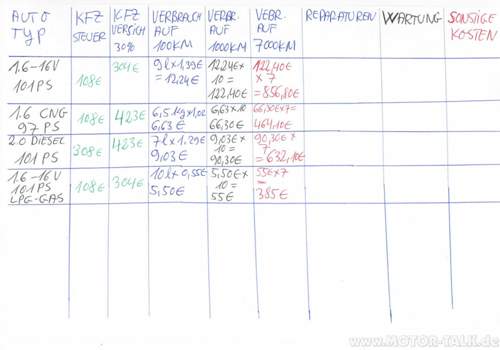 AUTO TYP
KFZ STEUER
KFZ VERSICH 30%
VERBRAUCH AUF 100KM
VERBR. AUF 1000KM
VEBR. AUF 7000KM
REPARATUREN
WARTUNG
SONSTIGE KOSTEN
1.6-16V 101 PS
108€
304€
9l x 1,39€ = 12,24€
12,24€ x 10 = 122,40€
122,40€ x 7 = 856,80€
1.6 CNG 97 PS
108€
423€
6,5 kg x 1,02 6,63€
6,63 x 10 66,30€
66,30€ x 7 = 464,10€
2.0 DIESEL 101 PS
308€
423€
7l x 1.29€ 9,03€
9,03€ x 10 = 90,30€
90,30€ x 7 = 632,10€
1.6-16V 101 PS LPG-GAS
108€
304€
10l x 0,55€ 5,50€
5,50€ x 10 = 55€
55€ x 7 = 385€
www.MOTOR-TALK.de